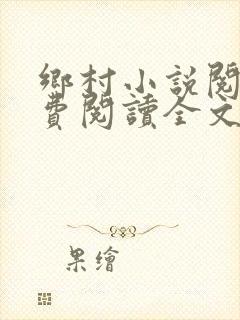 鄉村小說閱
費閱讀全文
果繪